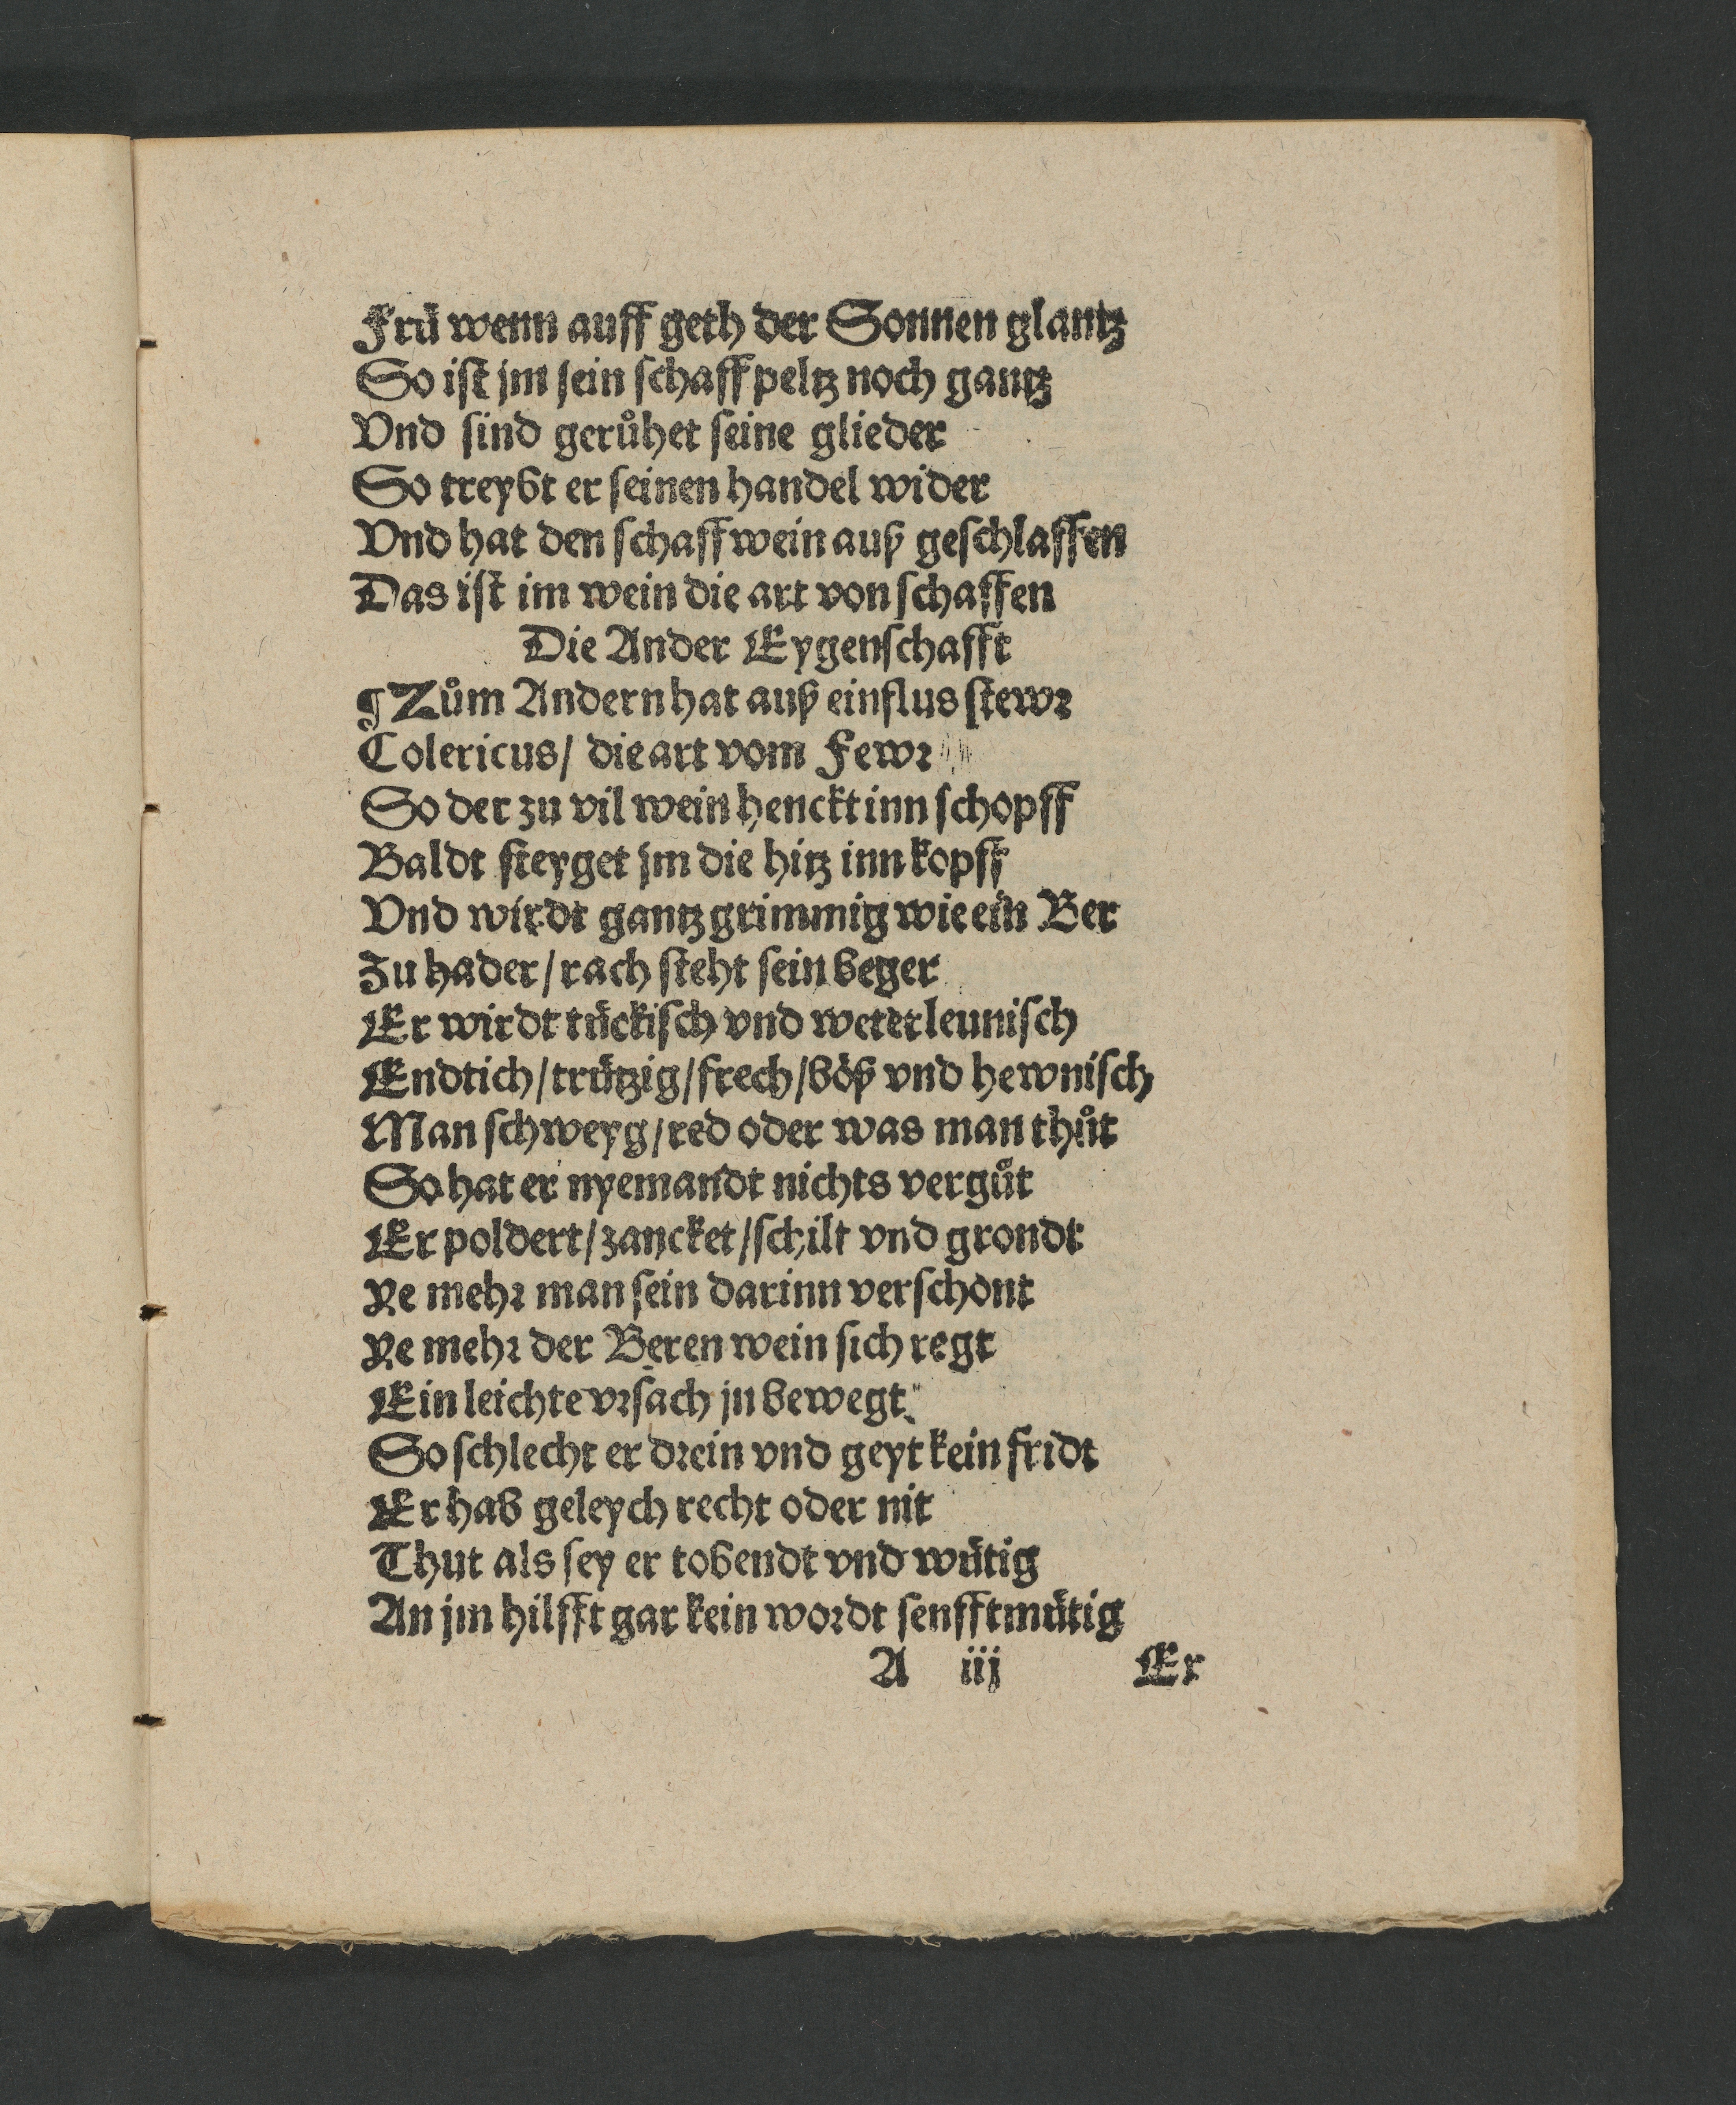 Frü wenn auff geth der Sonnen glantz
So ist jm sein schaffpeltz noch gantz
Vnd sind gerůhet seine glieder
So treybt er seinen handel wider
Vnd hat den schaffwein auß geschlaffen
Das ist im wein die art von schaffen
Die Ander Eygenschafft
¶ Zům Andern hat auß einflus stewr
Colericus/ die art vom Fewr
So der zu vil wein henckt inn schopff
Baldt steyget jm die hitz inn kopff
Vnd wirdt gantz grimmig wie ein Ber
Zu hader/ rach steht sein beger
Er wirdt tückisch vnd weterleunisch
Endtich/ trützig/ frech/ böß vnd hewnisch
Man schweyg/ red oder was man thůt
So hat er nyemandt nichts vergůt
Er poldert/ zancket/ schilt vnd grondt
Ye mehr man sein darinn verschont
Ye mehr der Beren wein sich regt
Ein leichte vrsach jn bewegt
So schlecht er drein vnd geyt kein fridt
Er hab geleych recht oder nit
Thut als sey er tobendt vnd wütig
An jm hilfft gar kein wordt senfftmütig
A iij Er